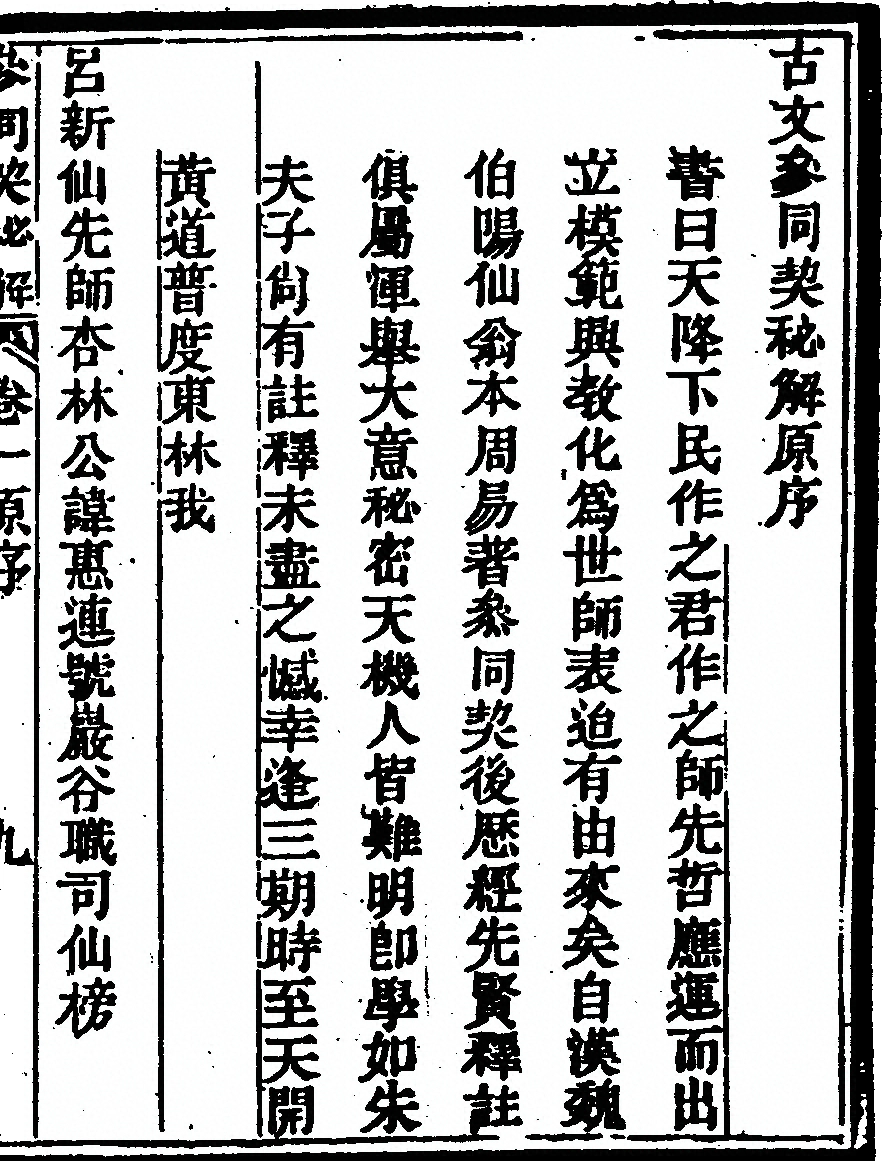 古文參同契秘解原序
書曰天降下民作之君作之師先哲應運而出
立模範興教化為世師表迨有由來矣自漢魏
伯陽仙翁本周易著參同契後歷經先賢釋註
俱屬渾舉大意秘密天機人皆難明卽學如朱
夫子尙有註釋未盡之憾幸逢三期時至天開
黃道普度東林我
呂新仙先師杏林公諱惠連號巖谷職司仙榜
參同契秘解 卷一原序 九